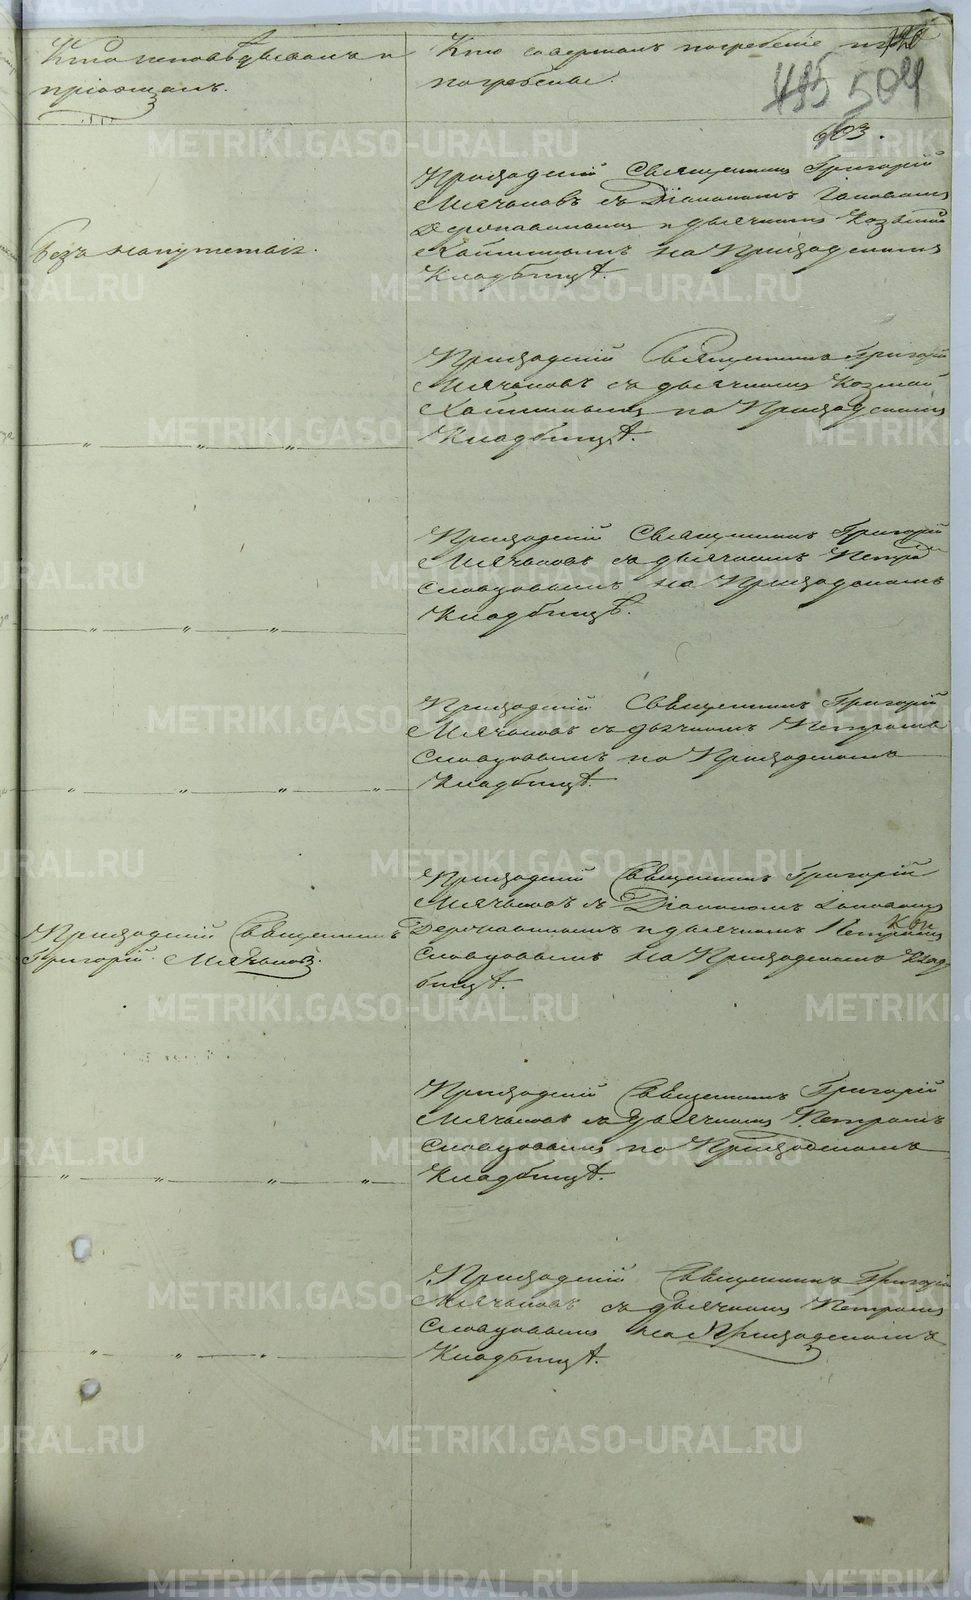 Кто исповѣдывалъ и
пріобщалъ.
Кто совершалъ погребеніе и гдѣ
погребены.
495 504
603.
Приходскій Священникъ Григорій
Мячковъ съ Діакономъ Іоанномъ
Державинымъ и дьячкомъ Козьмой
на Приходскомъ
Кладбищѣ.
Безъ напутствія.
Приходскій Священникъ Григорій
Мячковъ съ дьячкомъ Козмой
на Приходскомъ
Кладбищѣ.
— " — " — " —
Приходскій Священникъ Григорій
Мячковъ съ дьячкомъ Петромъ
Словцовымъ на Приходскомъ
Кладбищѣ.
— " — " — " —
Приходскій Священникъ Григорій
Мячковъ съ дьячкомъ Петромъ
Словцовымъ на Приходскомъ
Кладбищѣ.
— " — " — " — " —
Приходскій Священникъ
Григорій Мячковъ.
Приходскій Священникъ Григорій
Мячковъ съ Діакономъ Іоанномъ
Державинымъ и дьячкомъ Петромъ
Словцовымъ на Приходскомъ Клад-
бищѣ.
Приходскій Священникъ Григорій
Мячковъ съ дьячкомъ Петромъ
Словцовымъ на Приходскомъ
Кладбищѣ.
— " — " — " — " —
Приходскій Священникъ Григорій
Мячковъ съ дьячкомъ Петромъ
Словцовымъ на Приходскомъ
Кладбищѣ.
— " — " — " —
METRIKI.GASO-URAL.RU